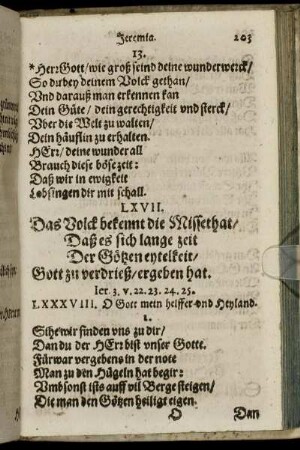 Jeremia. 203
13.
*Herr Gott/ wie groß seind deine wunderwerck/
So du bey deinem Volck gethan/
Vnd darauß man erkennen kan
Dein Güte/ dein gerechtigkeit vnd sterck/
Vber die Welt zu walten/
Dein häuflin zu erhalten.
HErr/ deine wunder all
Brauch diese böse zeit:
Daß wir in ewigkeit
Lobsingen dir mit schall.
LXVII.
Das Volck bekennt die Missethat/
Daß es sich lange zeit
Der Götzen eytelkeit/
Gott zu verdrieß/ ergeben hat.
Jer. 3. v. 22. 23. 24. 25.
LXXXVIII. O Gott mein helffer vnd Heyland.
1.
Sihe wir finden vns zu dir/
Dan du der HErr bist vnser Gott.
Fürwar vergebens in der note
Man zu den Hügeln hat begir:
Vmbsonst ists auff vil Berge steigen/
Die man den Götzen heiligt eigen.
O Dan